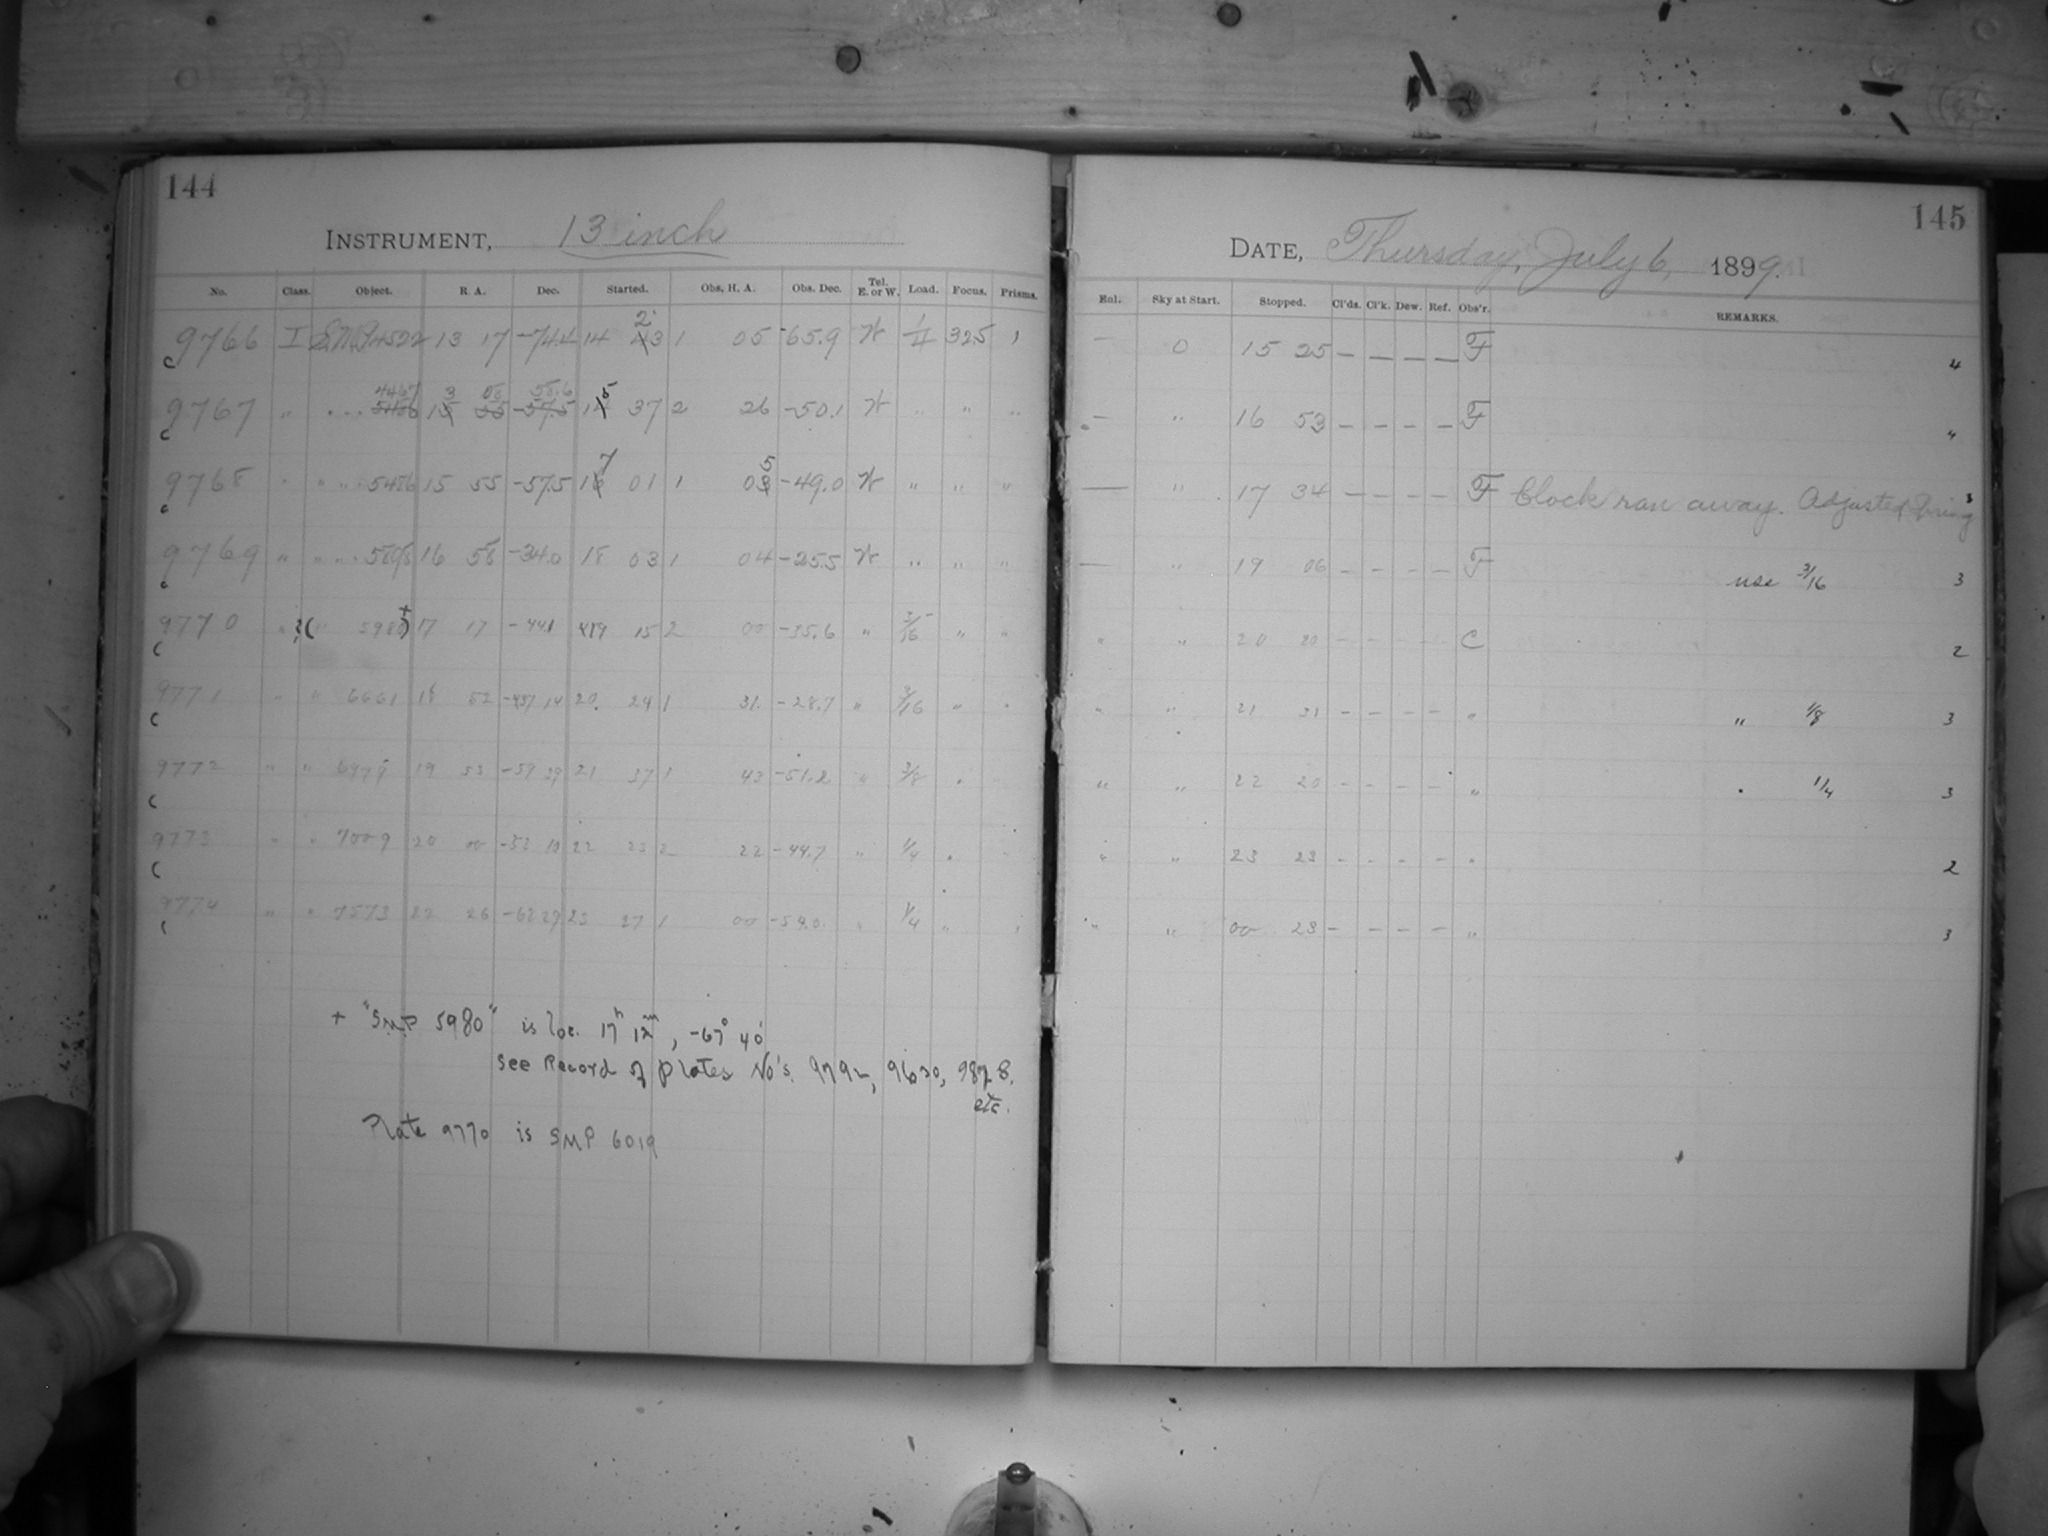 144
INSTRUMENT, 13 inch
No. Class. Object. R. A. Dec. Started. Obs. H. A. Obs. Dec. Tel. E. or W. Load. Focus. Prisms.
9766 I SMP 4522 13 17 -74.4 14 23 1 05 -65.9 W 325
9767 " " 4467 13 08 -58.6 15 37 2 26 -50.1 W " " "
9768 " " " 5486 15 55 -57.5 17 01 1 05 -49.0 W " " "
9769 " " " 16 58 -34.0 18 03 1 04 -25.5 W " " "
9770 " " 5980 + 17 17 -44.1 19 15 2 00 -35.6 " 3/16 " "
9771 " " 6661 18 52 20 24 1 31 -28.7 " 3/16 " "
9772 " " 19 53 -59 29 21 37 1 43 -51.2 "
9773 " " 7009 20 00 -52 22 23 2 22 -44.7 " 1/4 "
9774 " " 7573 22 26 -62 29 23 27 1 00 " 1/4 "
+ "SMP 5980" is loc. 17h 12m, -67° 40'
See Record of plates No's. 9792, 9630, 9878, etc.
Plate 9770 is SMP 6019
145
DATE, Thursday, July 6, 1899.
Eol. Sky at Start. Stopped. Cl'ds. Cl'k. Dew. Ref. Obs'r. REMARKS.
— 0 15 25 — — — — F 4
— " 16 53 — — — — F 4
— " 17 34 — — — — F Clock ran away. Adjusted Spring 3
— " 19 06 — — — — F use 3/16 3
" " 20 20 — — — — C 2
" " 21 31 — — — — " " 1/8 3
" " 22 20 — — — — " " 1/4 3
" " 23 23 — — — — " 2
" " 00 28 — — — — " 3